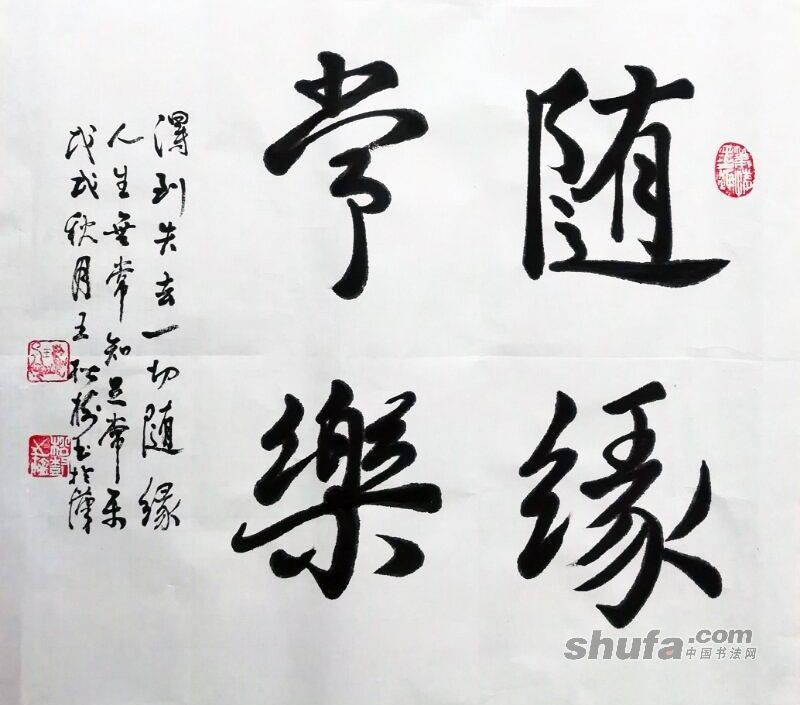 随缘
常樂
得到失去一切随缘
人生無常知足常樂
戊戌秋月王松樹书於漢
shufa.com
中国书法网